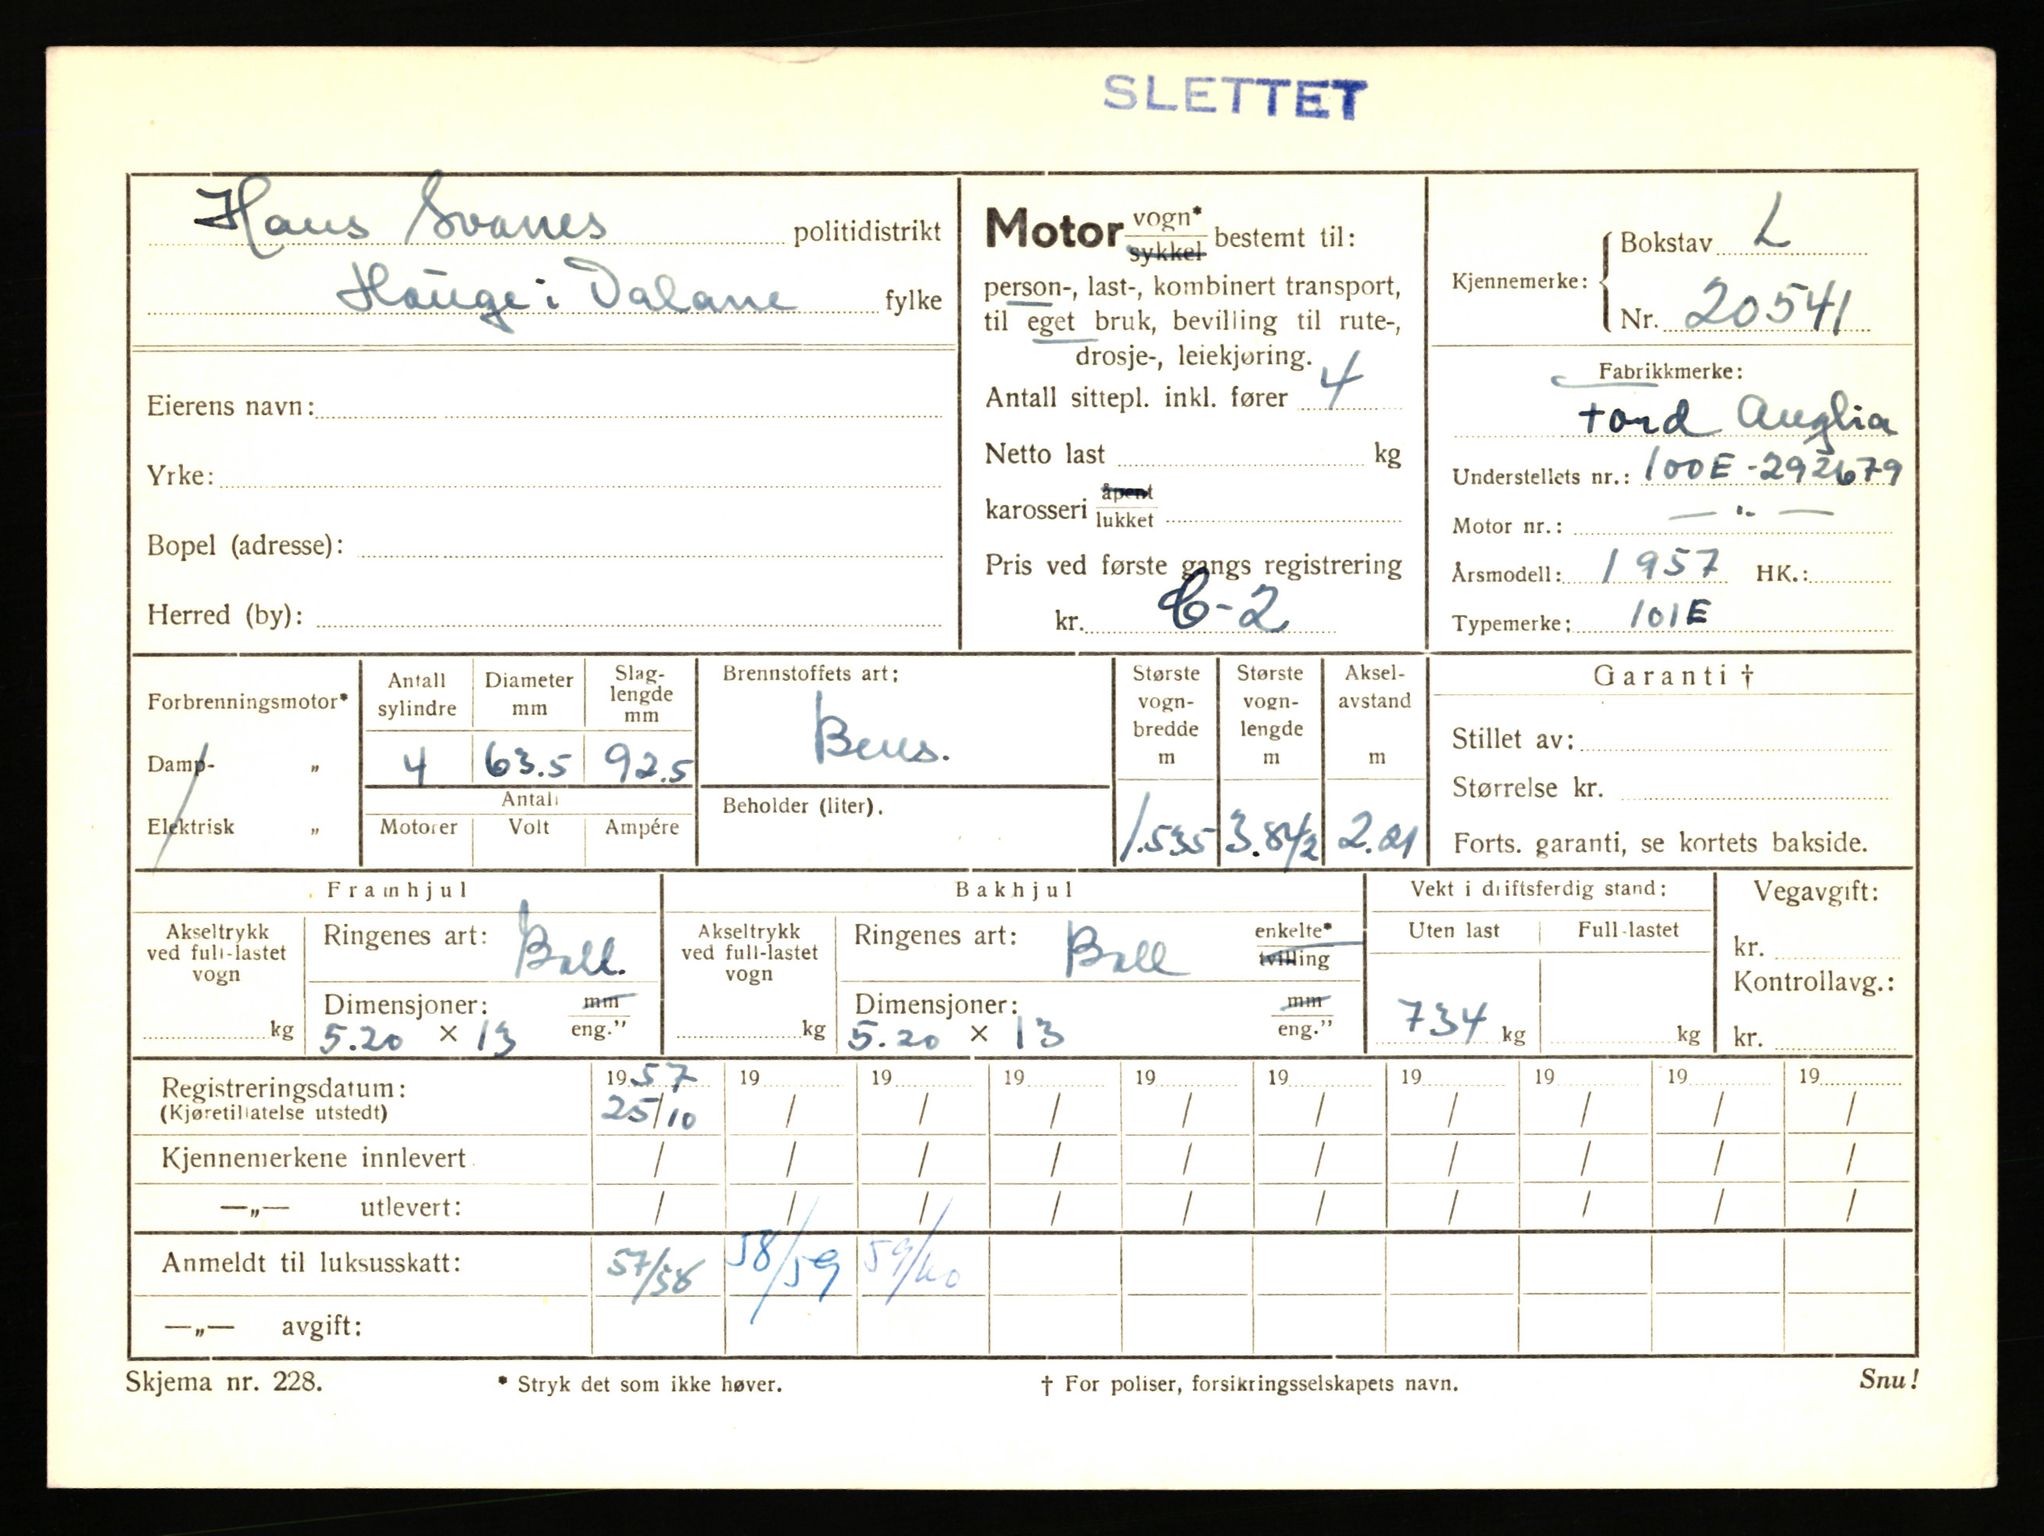 SLETTET
Hans Svanes politidistrikt
Hauge i Dalane fylke
Eierens navn:
Yrke:
Bopel (adresse):
Herred (by):
Motor vogn* sykkel bestemt til:
person-, last-, kombinert transport,
til eget bruk, bevilling til rute-,
drosje-, leiekjøring.
Antall sittepl. inkl. fører 4
Netto last kg
karosseri åpent lukket
Pris ved første gangs registrering
kr. C-2
Kjennemerke: Bokstav L
Nr. 20541
Fabrikkmerke:
Ford Anglia
Understellets nr.: 100E-292679
Motor nr.: — " —
Årsmodell: 1957 HK.:
Typemerke: 101E
Forbrenningsmotor*
Damp- „
Elektrisk „
Antall sylindre
4
Diameter mm
63.5
Slag-lengde mm
92.5
Antall
Motorer Volt Ampére
Brennstoffets art:
Bens.
Beholder (liter).
Største vogn-bredde m
1.535
Største vogn-lengde m
3.842
Aksel-avstand m
2.21
Garanti †
Stillet av:
Størrelse kr.
Forts. garanti, se kortets bakside.
Framhjul
Akseltrykk ved full-lastet vogn
kg
Ringenes art: Ball.
Dimensjoner: mm eng."
5.20 × 13
Bakhjul
Akseltrykk ved full-lastet vogn
kg
Ringenes art: Ball enkelte* tvilling
Dimensjoner: mm eng."
5.20 × 13
Vekt i driftsferdig stand:
Uten last Full-lastet
734 kg kg
Vegavgift:
kr.
Kontrollavg.:
kr.
Registreringsdatum: 1957 19 19 19 19 19 19 19 19 19
(Kjøretillatelse utstedt) 25/10 / / / / / / / / /
Kjennemerkene innlevert / / / / / / / / / /
—„— utlevert: / / / / / / / / / /
Anmeldt til luksusskatt: 57/58 58/59 59/60
—„— avgift:
Skjema nr. 228. * Stryk det som ikke høver. † For poliser, forsikringsselskapets navn. Snu!